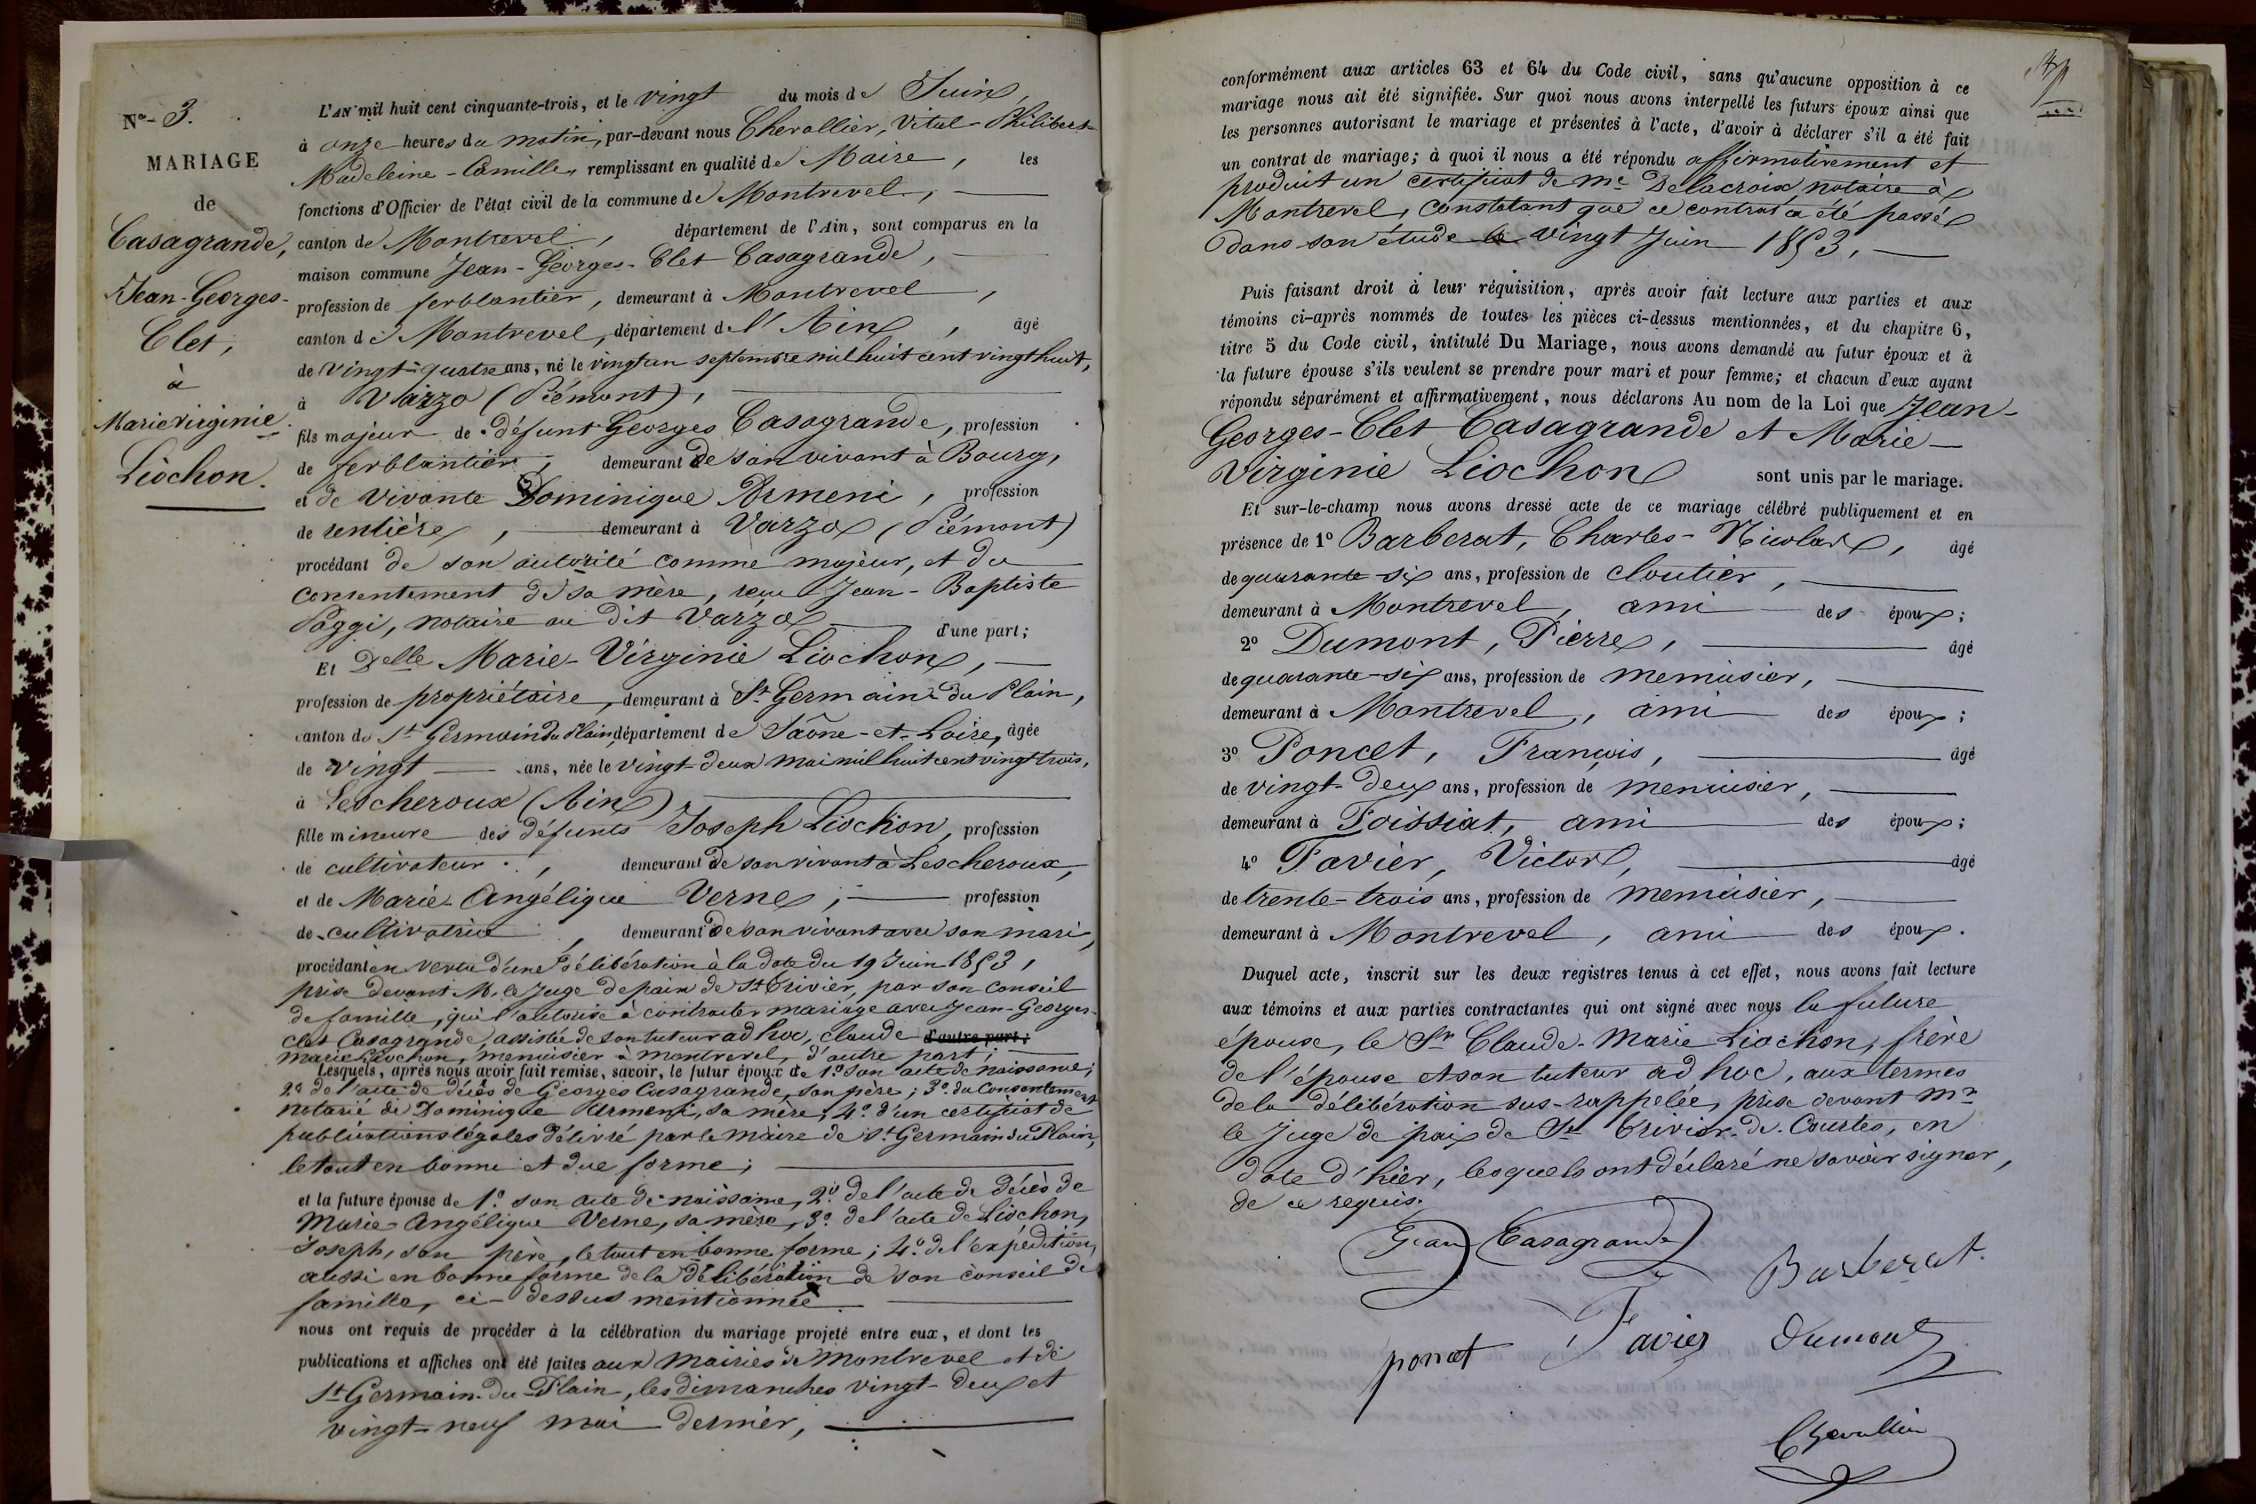 No- 3.
MARIAGE
de
Casagrande,
Jean-Georges-
Clet,
à
Marie Virginie
Liochon.
L'AN mil huit cent cinquante-trois, et le vingt du mois de Juin,
à onze heures du matin, par-devant nous Chevallier, Vital-Philibert-
Madeleine-Camille, remplissant en qualité de Maire, les
fonctions d'Officier de l'état civil de la commune de Montrevel,
canton de Montrevel, département de l'Ain, sont comparus en la
maison commune Jean-Georges-Clet Casagrande,
profession de ferblantier, demeurant à Montrevel,
canton de Montrevel, département de l'Ain, âgé
de vingt-quatre ans, né le vingt un septembre mil huit cent vingt huit,
à Varzo (Piémont),
fils majeur de défunt Georges Casagrande, profession
de ferblantier, demeurant de son vivant à Bourg,
et de vivante Dominique Armeni, profession
de rentière, demeurant à Varzo (Piémont)
procédant de son autorité comme majeur, et du
consentement de sa mère, reçu Jean-Baptiste
Paggi, notaire au dit Varzo d'une part;
Et Delle Marie-Virginie Liochon,
profession de propriétaire, demeurant à St Germain du Plain,
canton de St Germain du Plain, département de Saône-et-Loire, âgée
de vingt ans, née le vingt-deux mai mil huit cent vingt trois,
à Lescheroux (Ain)
fille mineure des défunts Joseph Liochon, profession
de cultivateur, demeurant de son vivant à Lescheroux,
et de Marie-Angélique Verne, profession
de cultivatrice, demeurant de son vivant avec son mari,
procédant en vertu d'une délibération à la date du 19 Juin 1853,
prise devant M. le Juge de paix de St Trivier, par son conseil
de famille, qui l'autorise à contracter mariage avec Jean-Georges-
Clet Casagrande, assistée de son tuteur ad hoc, Claude d'autre part;
Marie Liochon, menuisier à Montrevel, d'autre part;
Lesquels, après nous avoir fait remise, savoir, le futur époux de 1° son acte de naissance;
2° de l'acte de décès de Georges Casagrande, son père; 3° du Consentement
notarié de Dominique Armeni, sa mère; 4° d'un certificat de
publications légales délivré par le Maire de St Germain du Plain,
le tout en bonne et due forme;
et la future épouse de 1° son acte de naissance, 2° de l'acte de décès de
Marie-Angélique Verne, sa mère, 3° de l'acte de Liochon,
Joseph, son père, le tout en bonne forme; 4° de l'expédition,
aussi en bonne forme de la délibération de son conseil de
famille, ci-dessus mentionnée
nous ont requis de procéder à la célébration du mariage projeté entre eux, et dont les
publications et affiches ont été faites aux Mairies de Montrevel et de
St Germain-du-Plain, les dimanches vingt-deux et
vingt-neuf mai dernier,
conformément aux articles 63 et 64 du Code civil, sans qu'aucune opposition à ce
mariage nous ait été signifiée. Sur quoi nous avons interpellé les futurs époux ainsi que
les personnes autorisant le mariage et présentes à l'acte, d'avoir à déclarer s'il a été fait
un contrat de mariage; à quoi il nous a été répondu affirmativement et
produit un certificat de Me Delacroix, notaire à
Montrevel, constatant que ce contrat a été passé
dans son étude le vingt Juin 1853,
Puis faisant droit à leur réquisition, après avoir fait lecture aux parties et aux
témoins ci-après nommés de toutes les pièces ci-dessus mentionnées, et du chapitre 6,
titre 5 du Code civil, intitulé Du Mariage, nous avons demandé au futur époux et à
la future épouse s'ils veulent se prendre pour mari et pour femme; et chacun d'eux ayant
répondu séparément et affirmativement, nous déclarons Au nom de la Loi que Jean-
Georges-Clet Casagrande et Marie-
Virginie Liochon sont unis par le mariage.
Et sur-le-champ nous avons dressé acte de ce mariage célébré publiquement et en
présence de 1° Barberat, Charles-Nicolas, âgé
de quarante-six ans, profession de cloutier,
demeurant à Montrevel, ami des époux;
2° Dumont, Pierre, âgé
de quarante-six ans, profession de menuisier,
demeurant à Montrevel, ami des époux;
3° Poncet, François, âgé
de vingt-deux ans, profession de menuisier,
demeurant à Foissiat, ami des époux;
4° Favier, Victor, âgé
de trente-trois ans, profession de menuisier,
demeurant à Montrevel, ami des époux.
Duquel acte, inscrit sur les deux registres tenus à cet effet, nous avons fait lecture
aux témoins et aux parties contractantes qui ont signé avec nous la future
épouse, le Sr Claude-Marie Liochon, frère
de l'épouse et son tuteur ad hoc, aux termes
de la délibération sus-rappelée, prise devant Mr
le Juge de paix de St Trivier-de-Courtes, en
date d'hier, lesquels ont déclaré ne savoir signer,
de ce requis.
Jean Casagrande
Barberat.
poncet Favier Dumont
Chevallier